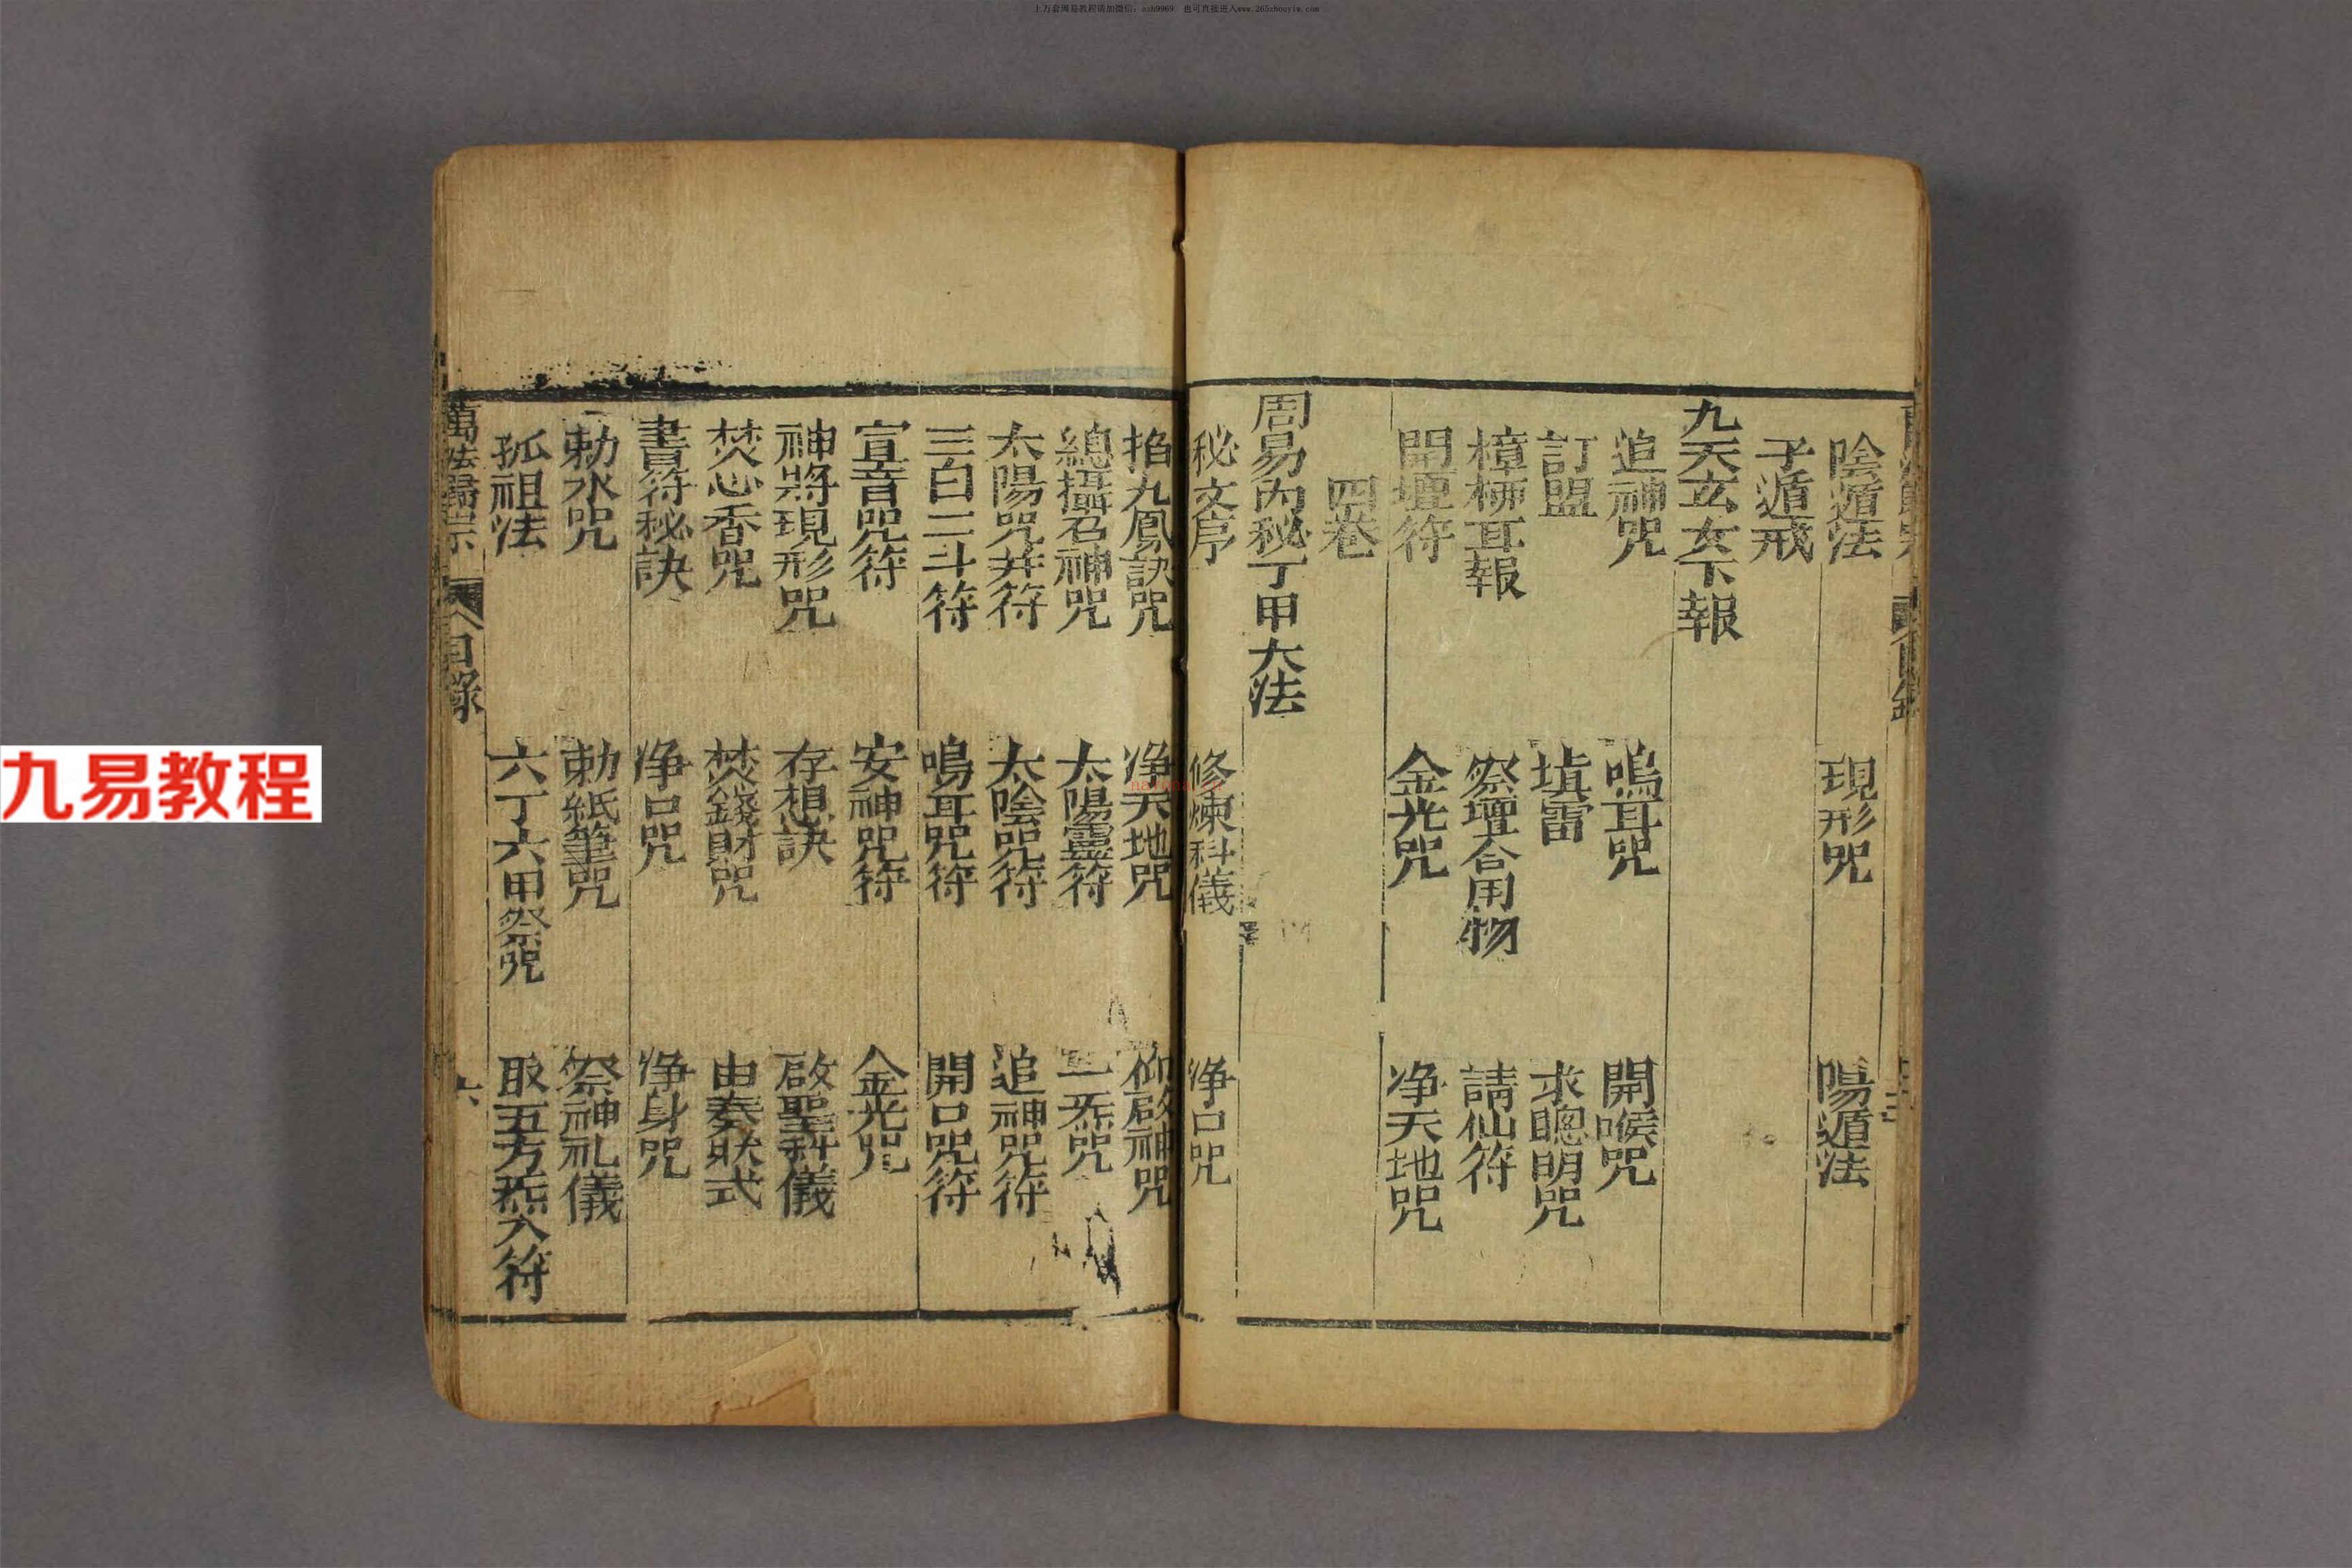 上万套周易教程请加微信：azh9969 也可直接进入www.265zhouyiw.com
九易教程
陰遁法 現形咒 陽遁法
子遁戒
九天玄女下報
追神咒 鳴耳咒 開喉咒
訂盟 填雷 求聰明咒
樟柳耳報 祭壇合用物 請仙符
開壇符 金光咒 净天地咒
四卷
周易內秘丁甲大法
秘文序 修煉科儀 净口咒
掐九鳳訣咒 净天地咒 仰啟神咒
總攝召神咒 太陽靈符 一炁咒
太陽咒并符 太陰咒符 追神咒符
三台二斗符 鳴耳咒符 開口咒符
宣音咒符 安神咒符 金光咒
神將現形咒 存想訣 啟聖科儀
焚心香咒 焚錢財咒 由奏狀式
書符秘訣 净口咒 净身咒
勅水咒 勅紙筆咒 祭神礼儀
孤祖法 六丁六甲祭咒 取五方炁入符
萬法歸宗 目錄 六